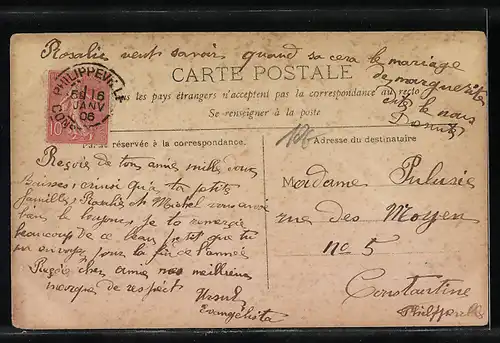 Rosalie veut savoir quand sa cera le mariage
de marguerite
CARTE POSTALE
Tous les pays étrangers n'acceptent pas la correspondance au recto
Se renseigner à la poste
PHILIPPEVILLE
16
JANV
06
CONS
10
Partie réservée à la correspondance.
Adresse du destinataire
Reçoie de ton amie mille dous
Baisses ainsi que ta ptite
famille, Rosalie et Michel
toujours je te remercie
beaucoup de ce beau que tu
pour la fin de l'année
Reçoie cher amie nos meilleure
marque de respét
Ursule
Evangélista
Madame Pulusie
rue des Moyen
no 5
Constantine
Philippeville